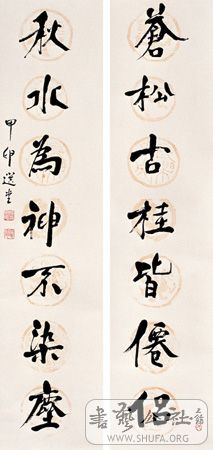 蒼松古桂皆僊侶
秋水為神不染塵
選堂
書藝公社
WWW.SHUFA.ORG